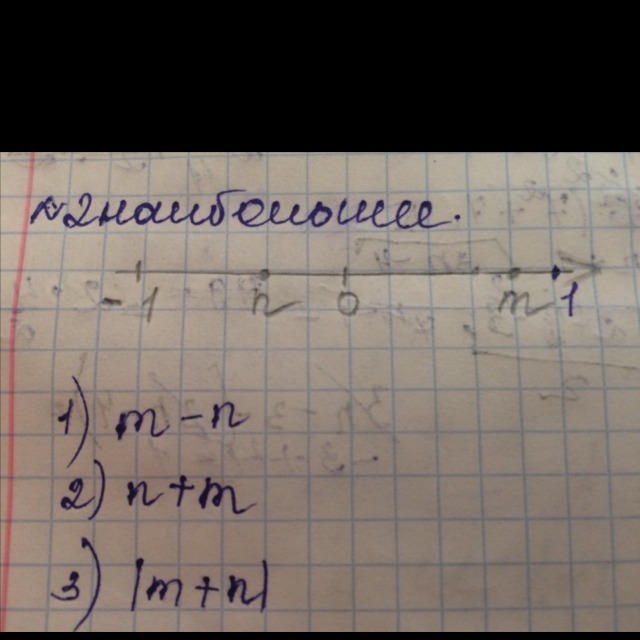 №2 наибольшее.
-1 n 0 m 1
1) m - n
2) n + m
3) |m + n|